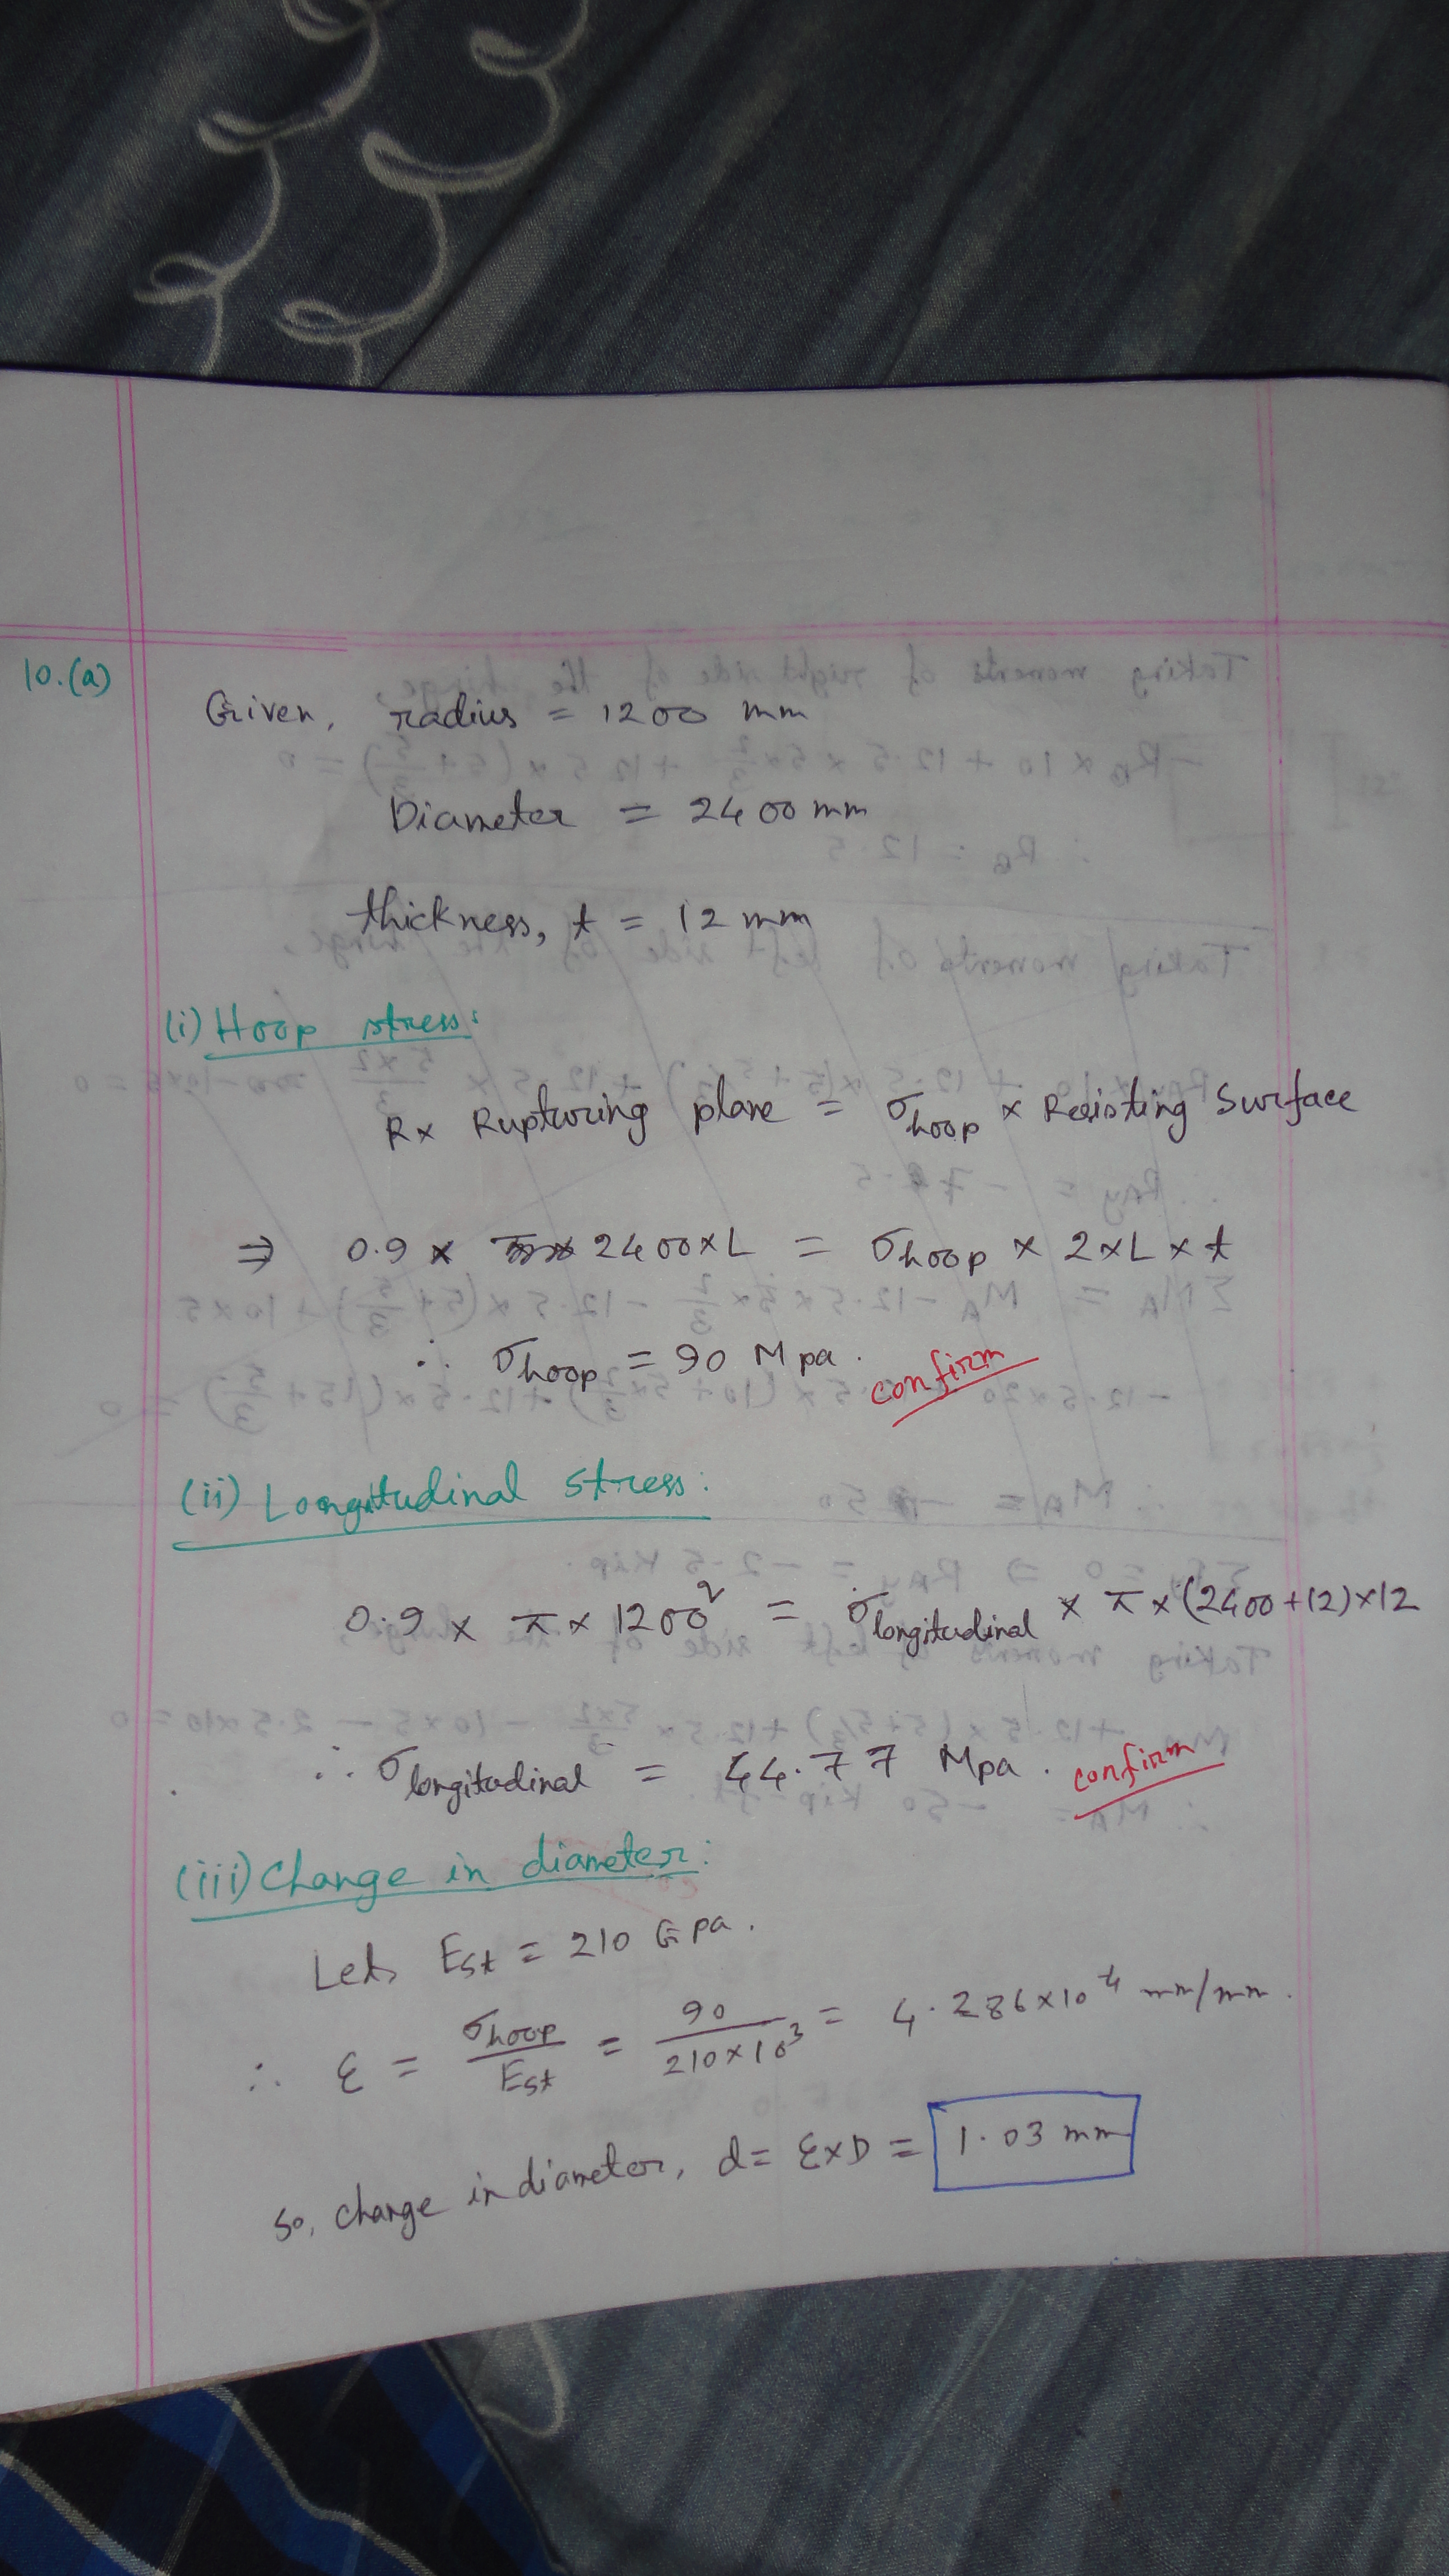 10.(a)
Given, radius = 1200 mm
Diameter = 2400 mm
thickness, t = 12 mm
(i) Hoop stress:
R x Rupturing plane = σhoop x Resisting Surface
⇒ 0.9 x 2400 x L = σhoop x 2 x L x t
∴ σhoop = 90 Mpa. confirm
(ii) Longitudinal stress:
0.9 x π x 1200² = σlongitudinal x π x (2400+12) x 12
∴ σlongitudinal = 44.77 Mpa. confirm
(iii) Change in diameter:
Lets Est = 210 Gpa.
∴ ε = σhoop/Est = 90/210x10³ = 4.286x10⁻⁴ mm/mm.
So, change in diameter, d = εxD = 1.03 mm